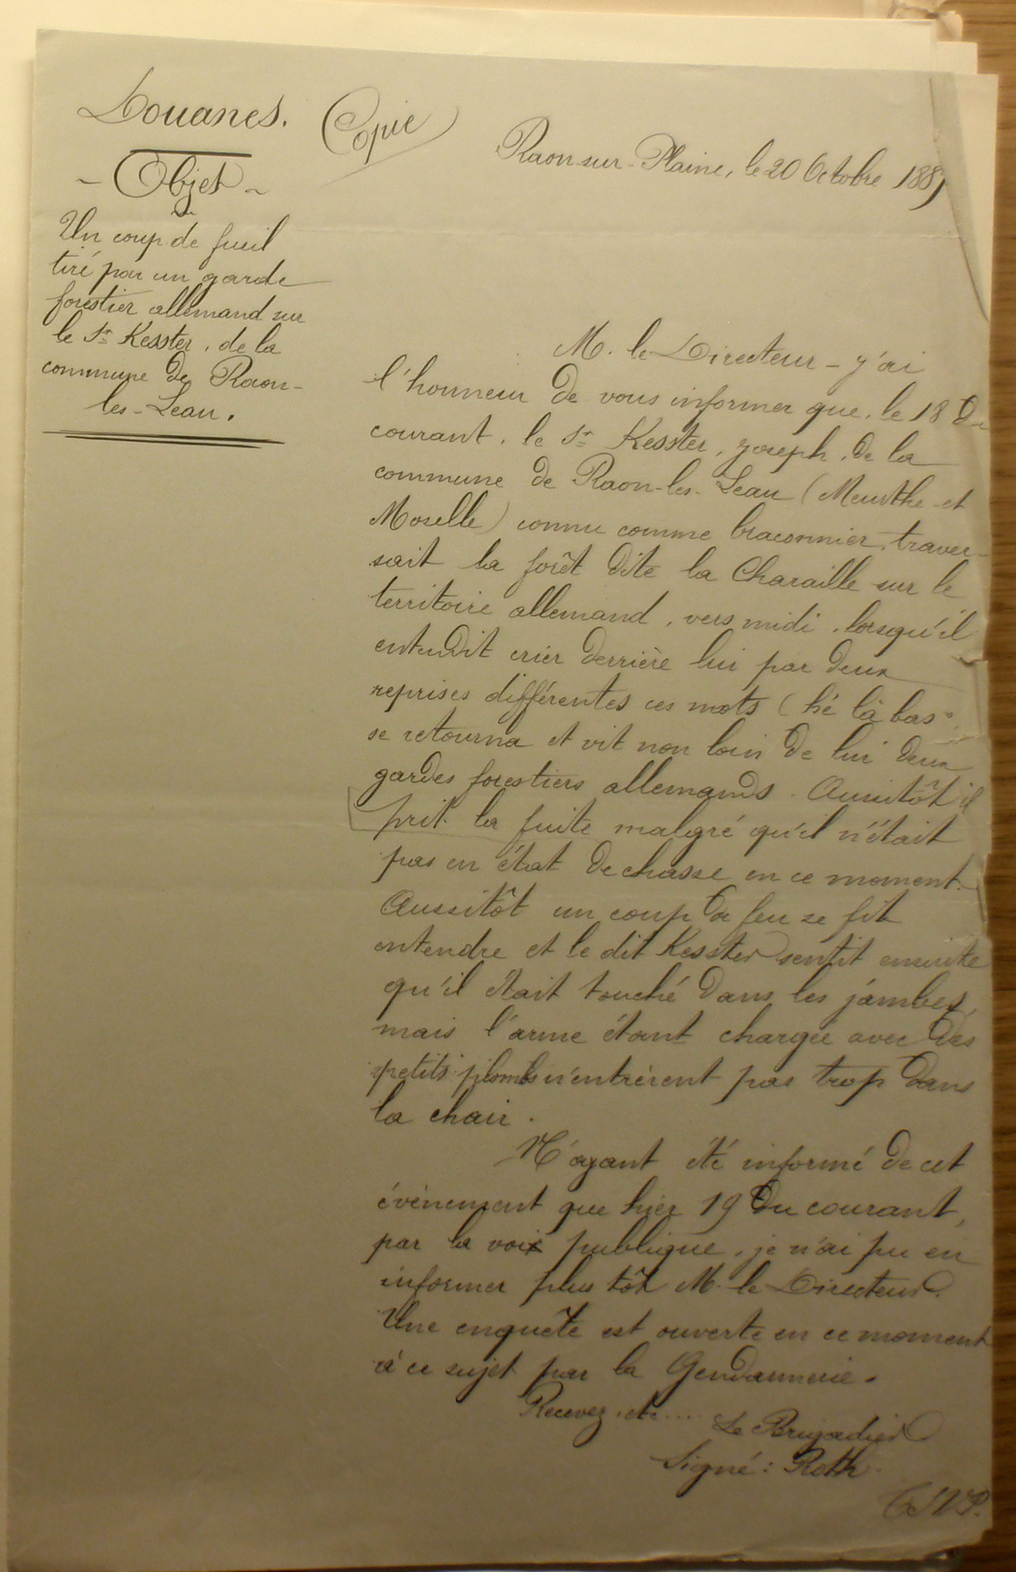 Douanes.
Copie
Raon-sur-Plaine, le 20 Octobre 188
- Objet -
Un coup de fusil
tiré par un garde
forestier allemand sur
le Sr Kesster, de la
commune de Raon-
les-Leau.
M. le Directeur - J'ai
l'honneur de vous informer que, le 18 du
courant, le Sr Kesster, Joseph, de la
commune de Raon-les-Leau (Meurthe-et
Moselle) connu comme braconnier, traver-
sait la forêt dite la Charaille sur le
territoire allemand, vers midi, lorsqu'il
entendit crier derrière lui par deux
reprises différentes ces mots (hé là bas
se retourna et vit non loin de lui deux
gardes forestiers allemands. Aussitôt il
prit la fuite malgré qu'il n'était
pas en état de chasse en ce moment.
Aussitôt un coup de feu se fit
entendre et le dit Kesster sentit ensuite
qu'il était touché dans les jambes
mais l'arme étant chargée avec des
petits plombs n'entrèrent pas trop dans
la chair.
N'ayant été informé de cet
évènement que hier 19 du courant,
par la voix publique, je n'ai pu en
informer plus tôt M. le Directeur.
Une enquête est ouverte en ce moment
à ce sujet par la Gendarmerie.
Recevez, etc....
Le Brigadier
Signé : Roth
T.S.V.P.